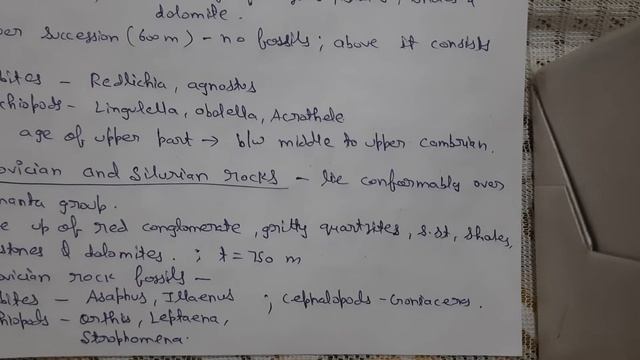 dolomite.
per succession (600m) - no fossils; above it consists
bites - Redlichia, agnostus
chiopods - Lingulella, obolella, Acrothele
age of upper part → b/w middle to upper cambrian.
ovician and silurian rocks - lie conformably over
manta group.
e up of red conglomerate, gritty quartzites, s.st, shales,
stones & dolomites. ; t = 750 m
ovician rock fossils -
bites - Asaphus, Illaenus ; cephalopods - Cronoceres.
hiopods - orthis, Leptaena,
Strophomena.